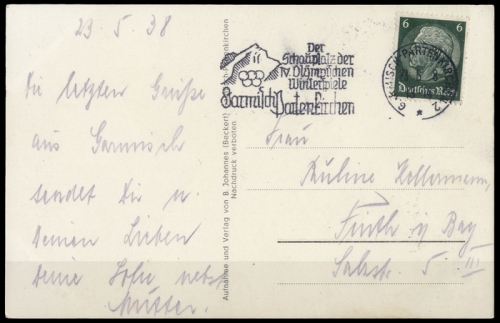 23.5.38
Die letzten Grüße
aus Garmisch
sendet Dir u.
deinen Lieben
Deine Sofie nebst
Mutter.
Aufnahme und Verlag von B. Johannes (Beckert)
Nachdruck verboten
Der
Schauplatz der
IV. Olympischen
Winterspiele
Garmisch
Partenkirchen
6 6
Deutsches Reich
Frau
Pauline Hellermann,
Fürth i/ Bay
Salzstr. 5 III